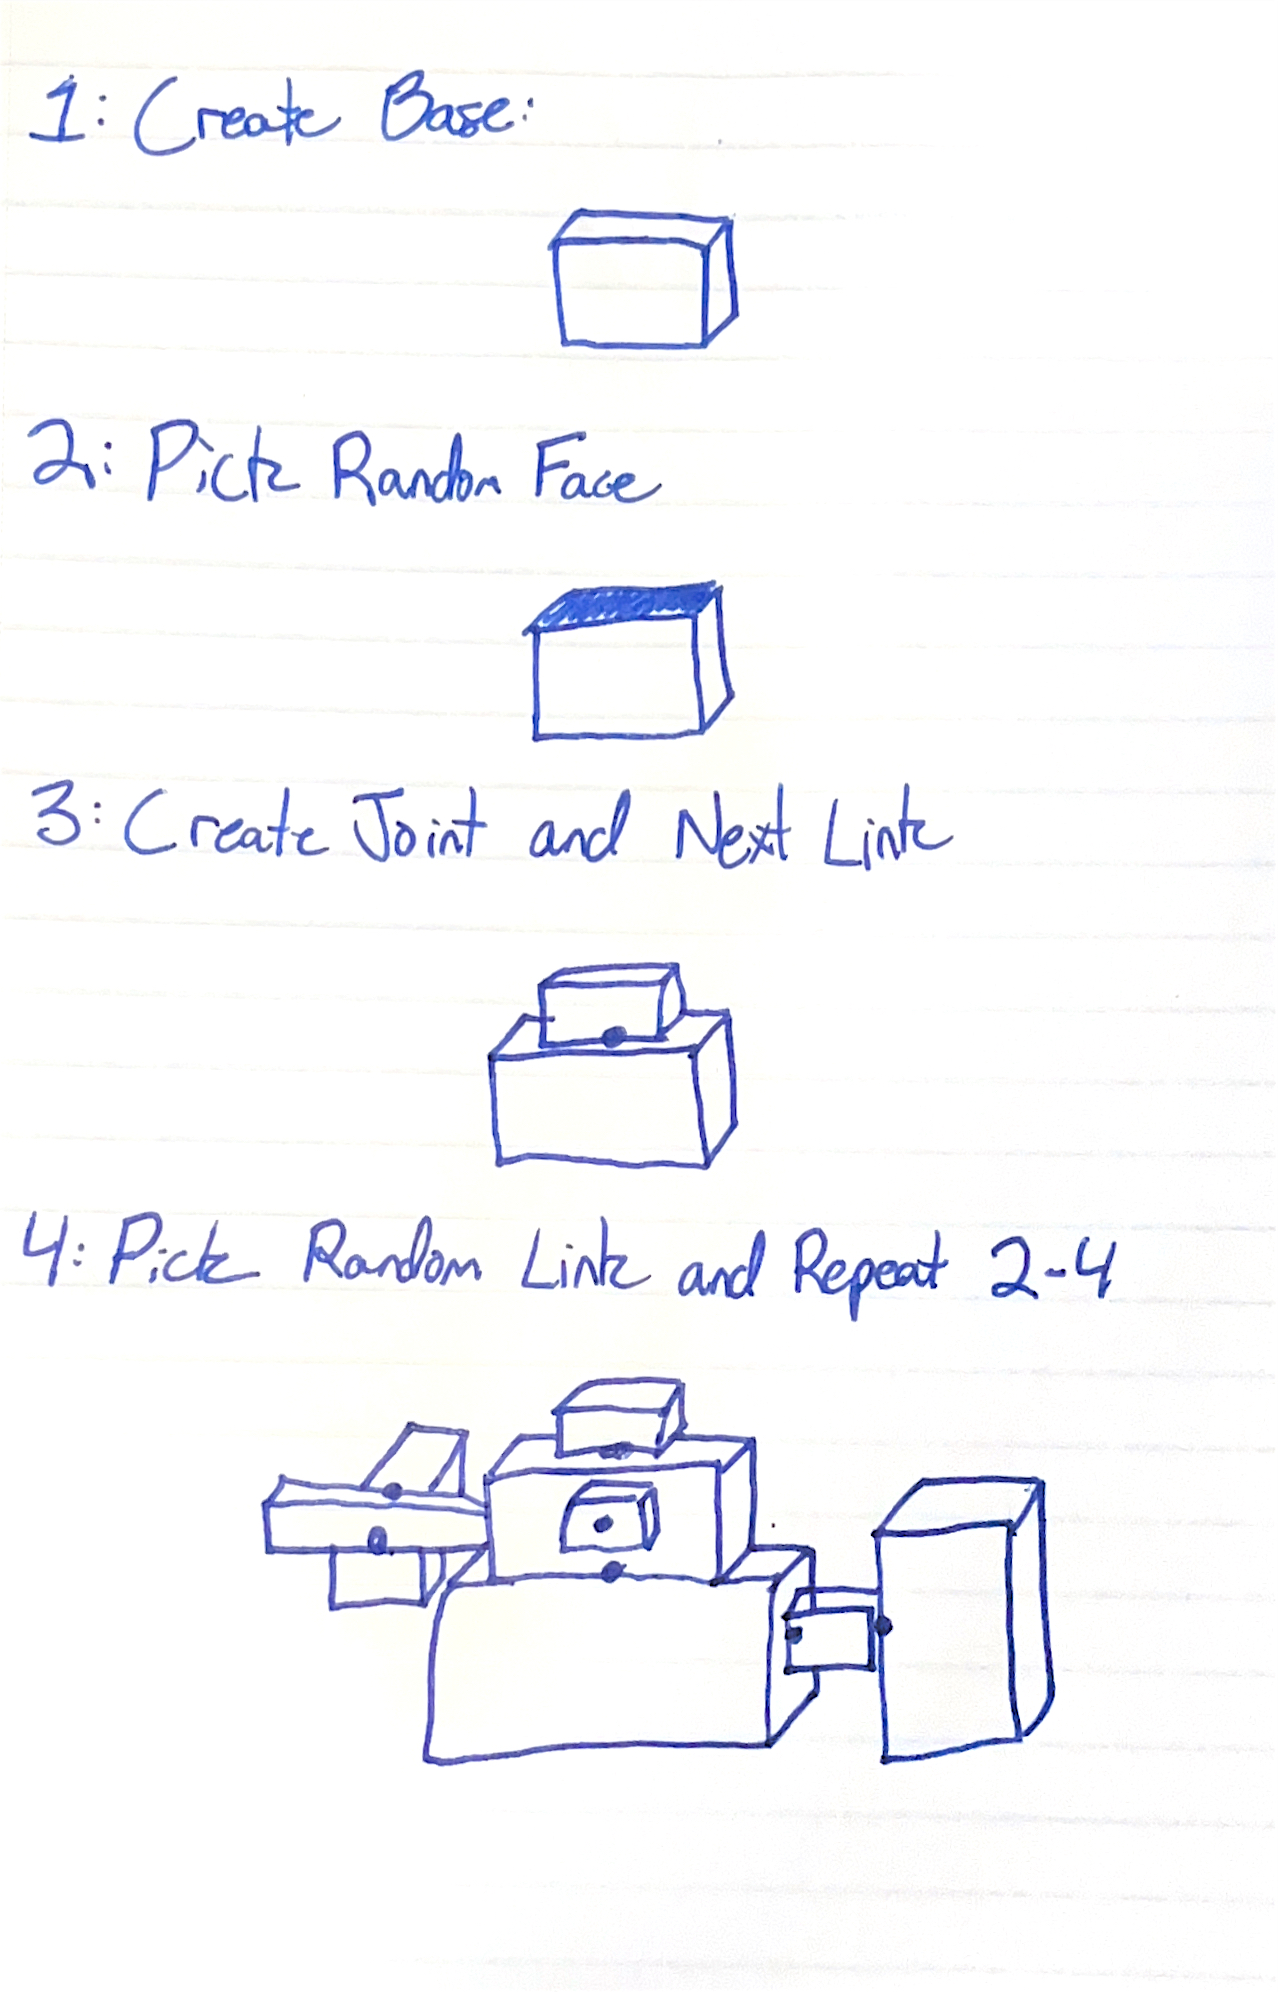 1: Create Base:
2: Pick Random Face
3: Create Joint and Next Link
4: Pick Random Link and Repeat 2-4